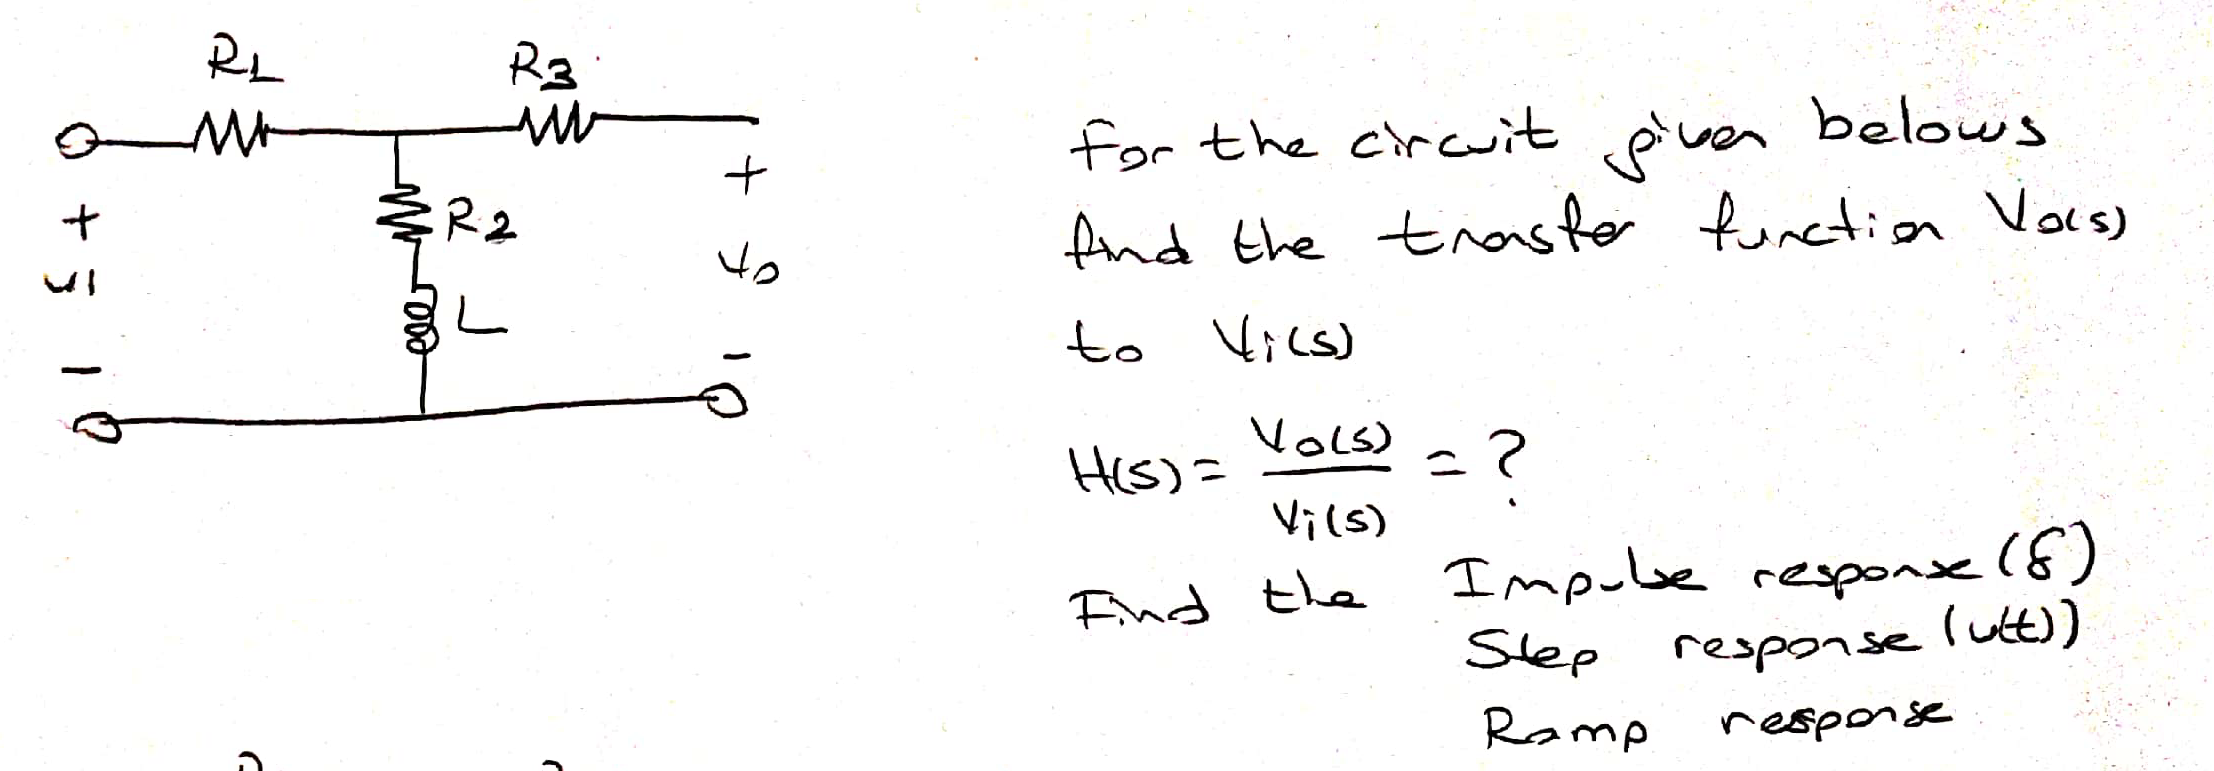 R1
R3
+
+
R2
vi
vo
L
-
-
For the circuit given belows
find the transfer function Vo(s)
to Vi(s)
H(s) = Vo(s) / Vi(s) = ?
Find the Impulse response (δ)
Step response (u(t))
Ramp response